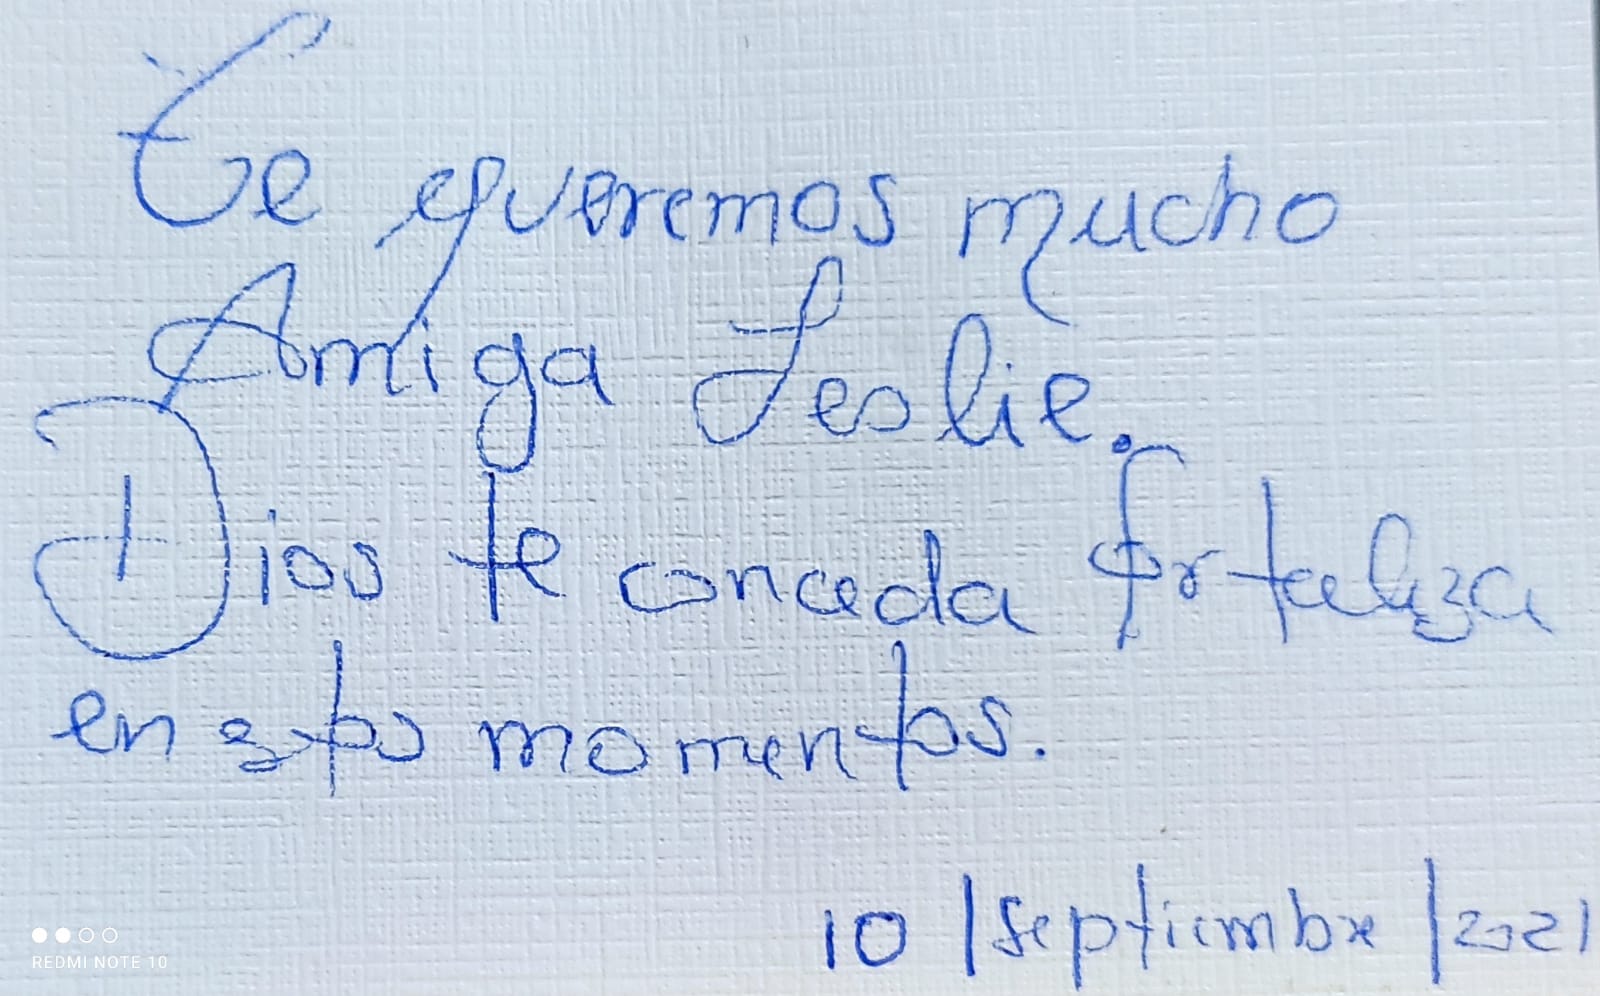 Te queremos mucho
Amiga Leslie.
Dios te conceda fortaleza
en estos momentos.
10 / septiembre / 2021
REDMI NOTE 10